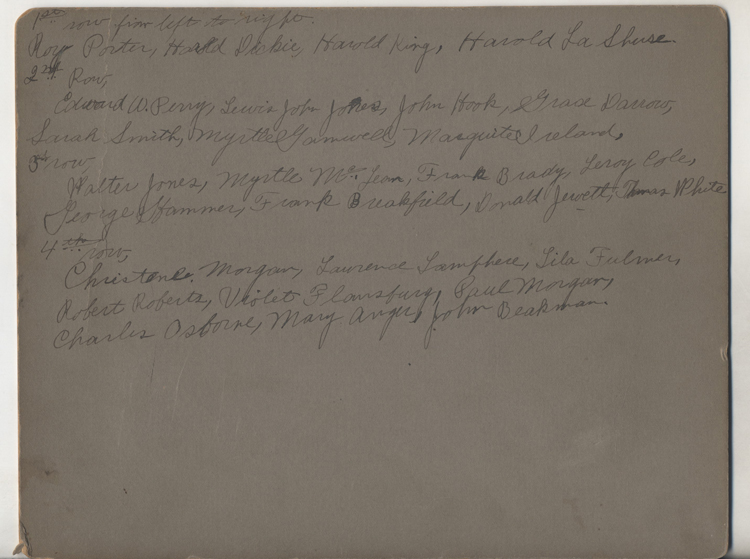 1st row from left to right.
Roy Porter, Harold Dickie, Harold King, Harold La Shure.
2nd Row,
Edward W. Perry, Lewis John Jones, John Hook, Grace Darrow,
Sarah Smith, Myrtle Gamwell, Ireland,
3d row
Walter Jones, Myrtle Mc Lean, Frank Brady, Leroy Cole,
George Hammer, Frank Breakfield, Donald Jewett, Thomas White
4th row,
Christene Morgan, Lawrence Lamphere, Lila Fulmer,
Robert Roberts, Violet Flansburg, Paul Morgan,
Charles Osborne, Mary Anger, John Beakman.